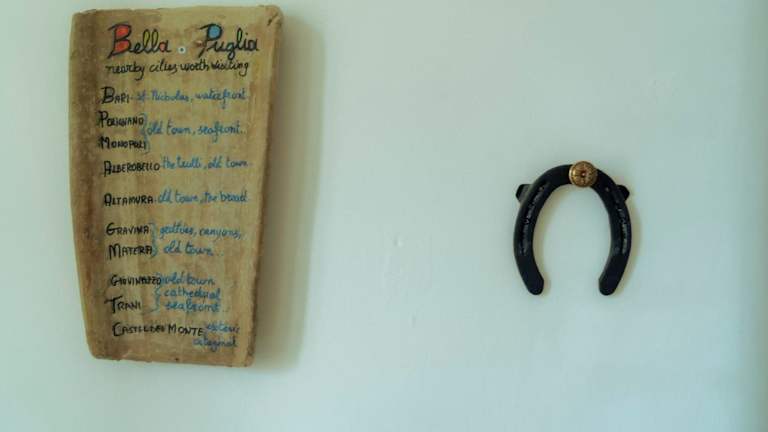 Bella . Puglia
nearby cities worth visiting
BARI - St. Nicholas, waterfront.
POLIGNANO
MONOPOLI } old town, seafront..
ALBEROBELLO - the trulli, old town.
ALTAMURA - old town, the bread.
GRAVINA } grottoes, canyons,
MATERA } old town..
GIOVINAZZO } old town
cathedral
TRANI } seafront..
CASTEL DEL MONTE